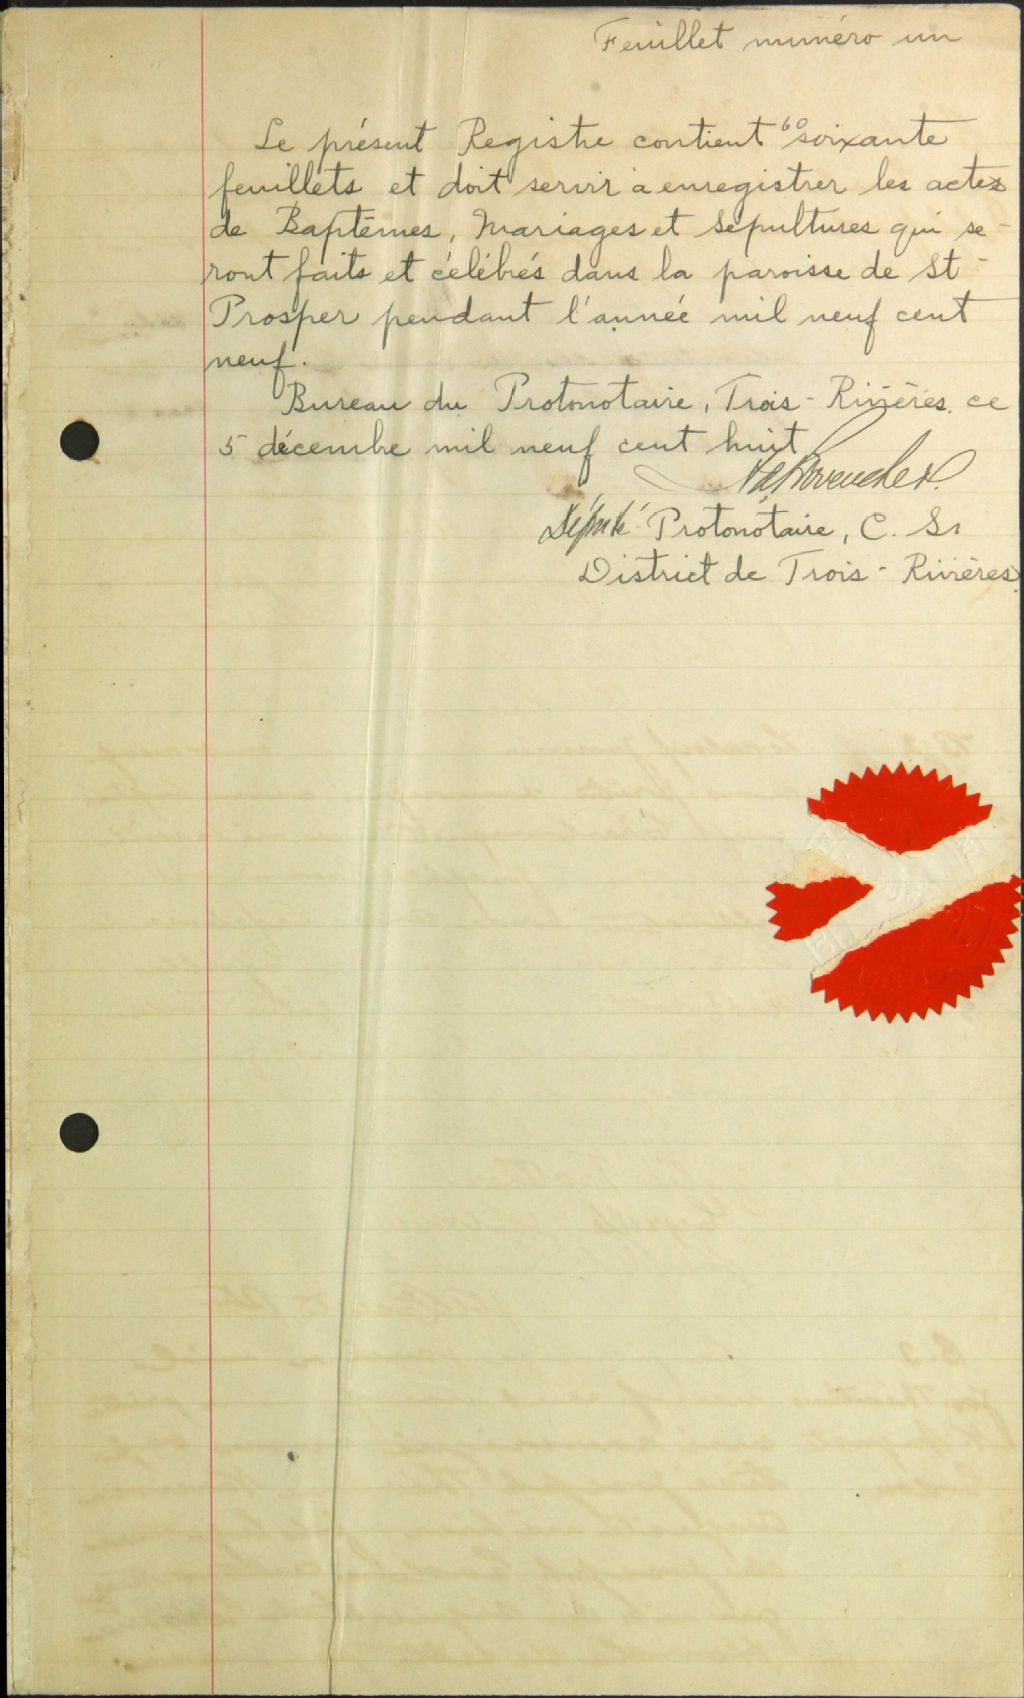 Feuillet numéro un
Le présent Registre contient 60 soixante
feuillets et doit servir à enregistrer les actes
de Baptêmes, Mariages et Sépultures qui se-
ront faits et célébrés dans la paroisse de St-
Prosper pendant l'année mil neuf cent
neuf.
Bureau du Protonotaire, Trois-Rivières, ce
5 décembre mil neuf cent huit
Député Protonotaire, C. S.
District de Trois-Rivières